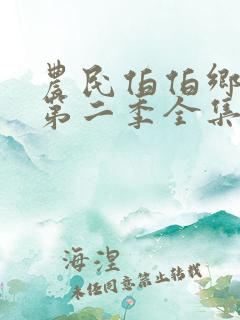 農民伯伯鄉
第二季全集
海涅
未经同意禁止转载